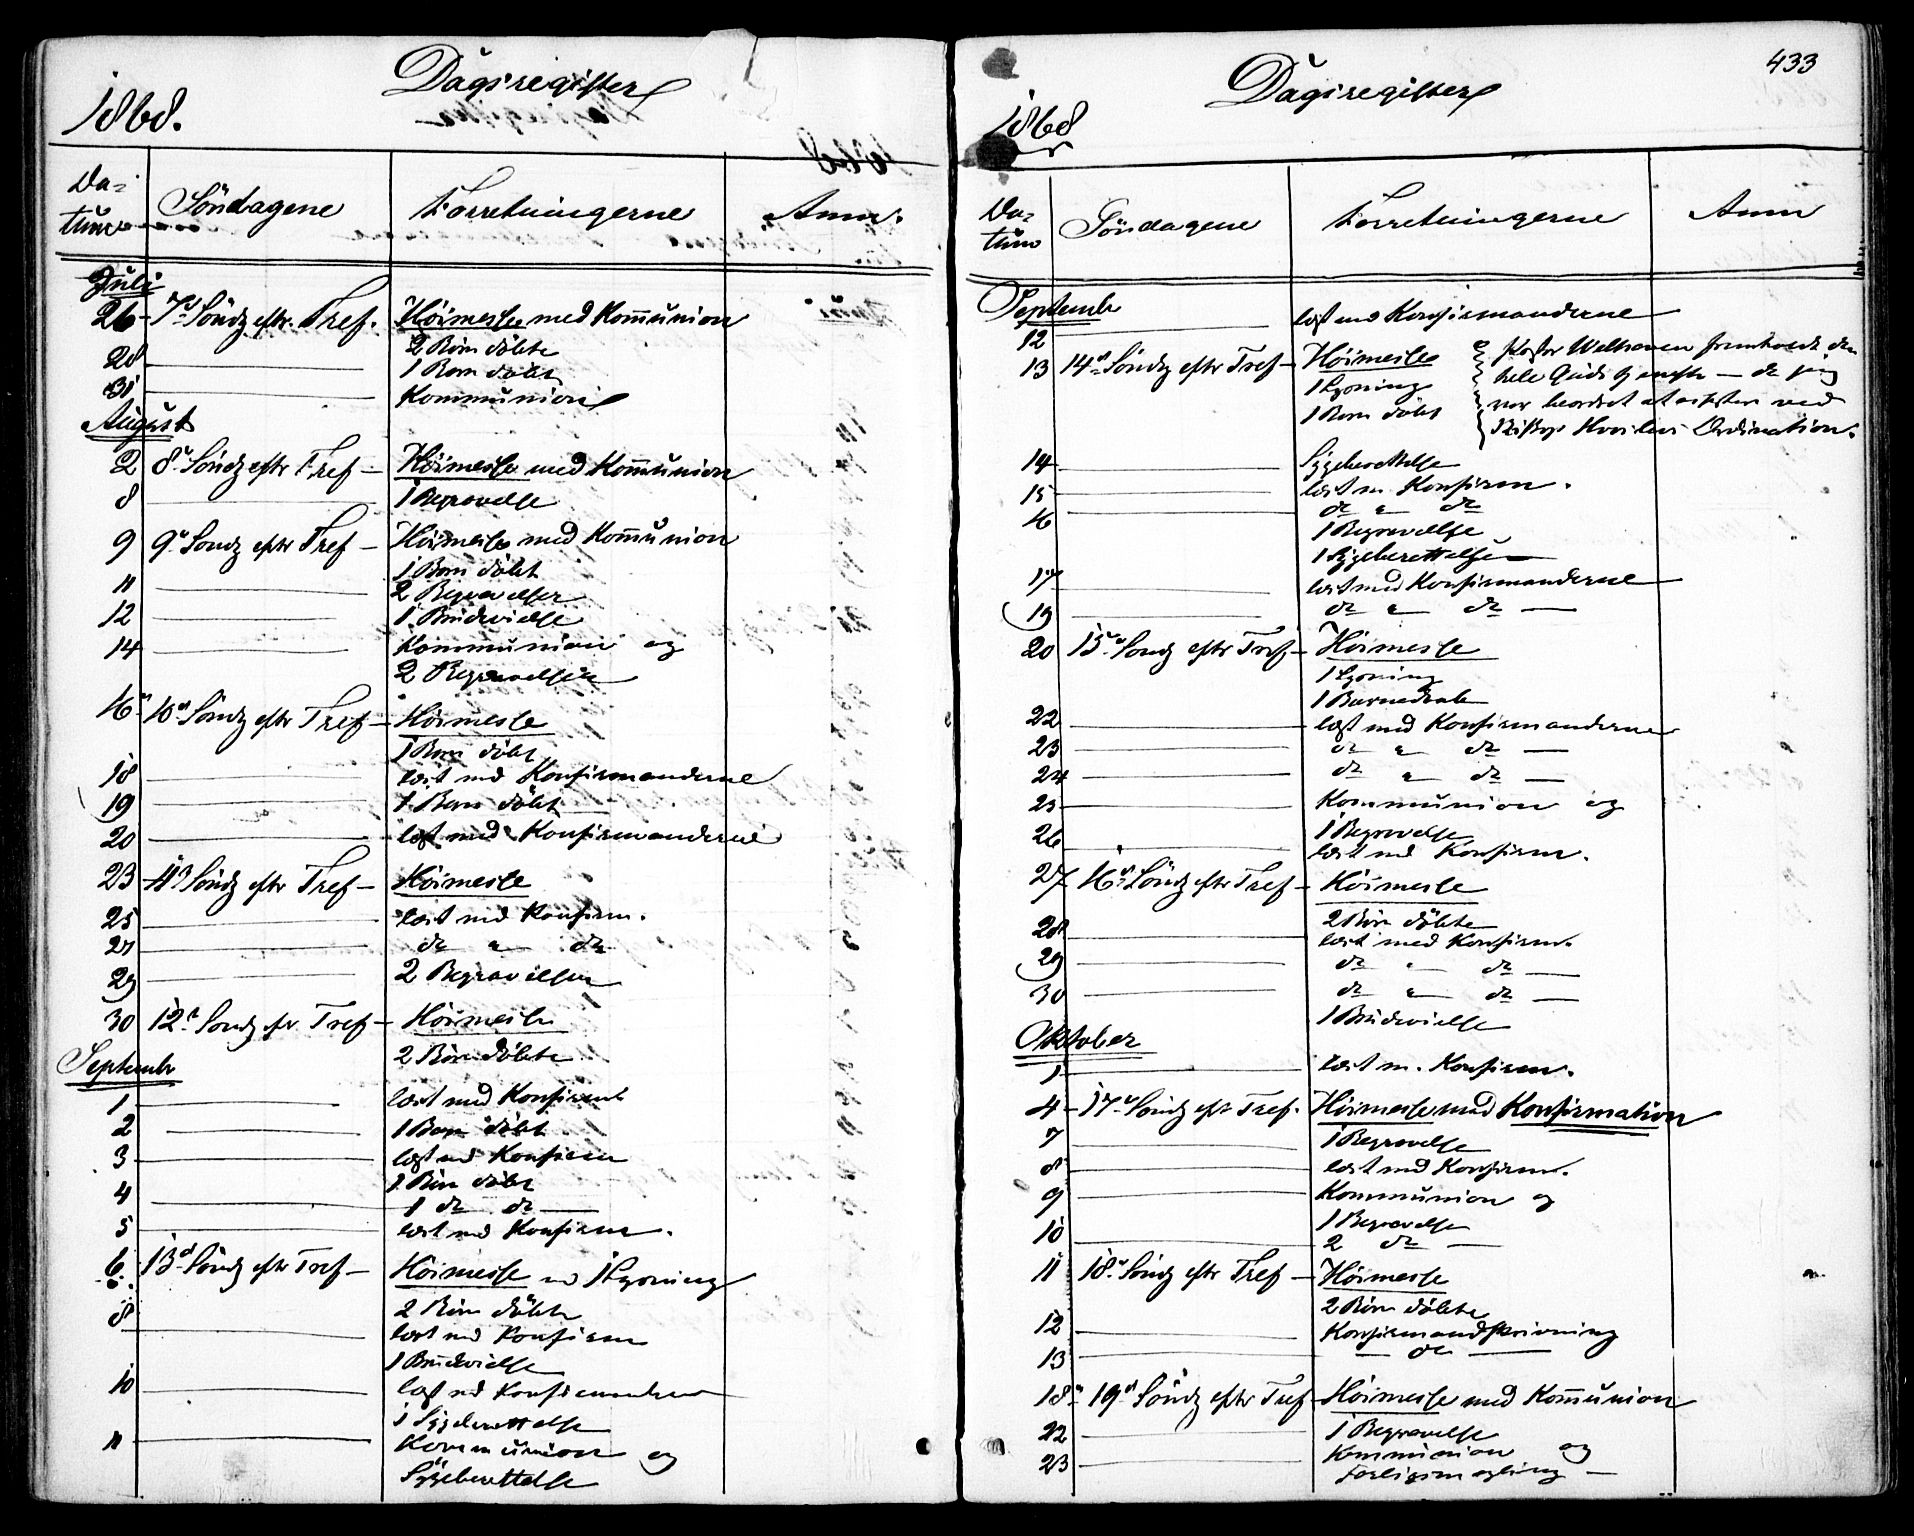 Dagsregister
1868.
Da-
tum
Söndagene
Forretningerne
Anm.
Juli
26 7d Söndg eftr. Tref. Höimesse med Kommunion
2 Börn döbte
28 1 Barn döbt
31 Kommunion
August
2 8d Söndg eftr Tref Höimesse med Kommunion
8 1 Begravelse
9 9d Söndg eftr Tref Höimesse med Kommunion
1 Barn döbt
11 2 Begravelser
12 1 Brudevielse
14 Kommunion og
2 Begravelser
16 10d Söndg eftr Tref Höimesse
1 Barn döbt
18 læst med Konfirmanderne
19 1 Barn döbt
20 læst med Konfirmanderne
23 11d Söndg eftr Tref Höimesse
25 læst med Konfirm.
27 do " do
29 2 Begravelser
30 12d Söndg eftr Tref Höimesse
2 Börn döbte
September
1 læst med Konfirm
2 1 Barn döbt
3 læst med Konfirm
1 Barn döbt
4 1 do do
5 læst med Konfirm.
6 13d Söndg eftr Tref Höimesse 1 Lysning
2 Börn döbte
8 læst med Konfirm
1 Brudevielse
10 læst md Konfirmanderne
1 Sygeberettelse
11 Kommunion og
Sygeberettelse
433
Dagsregister
1868
Da-
tum
Söndagene
Forretningerne
Anm
September
12 læst med Konfirmanderne
13 14d Söndg eftr Tref Höimesse
1 Lysning
1 Barn döbt
Pastor Welhaven fremholdt den
hele Guds tjeneste — da jeg
var beordret at assistere ved
Biskop Ordination.
14 Sygeberettelse
15 læst m. Konfirm.
16 do " do
1 Begravelse
1 Sygeberettelse
17 læst med Konfirmanderne
19 do " do
20 15d Söndg eftr Tref Höimesse
1 Lysning
1 Barnedaab
22 læst med Konfirmanderne
23 do " do
24 do " do
25 Kommunion og
1 Begravelse
26 læst med Konfirm.
27 16d Söndg eftr Tref Höimesse
2 Börn döbte
28 læst med Konfirm.
29 do " do
30 do " do
1 Brudevielse
Oktober
1 læst m. Konfirm.
4 17d Söndg eftr Tref. Höimesse med Konfirmation
7 1 Begravelse
8 læst med Konfirm.
9 Kommunion og
1 Begravelse
10 2 do
11 18d Söndg eftr Tref Höimesse
2 Börn döbte
12 Konfirmandskrivning
13 do
18 19d Söndg eftr Tref Höimesse med Kommunion
22 1 Begravelse
23 Kommunion og
Forligsmægling